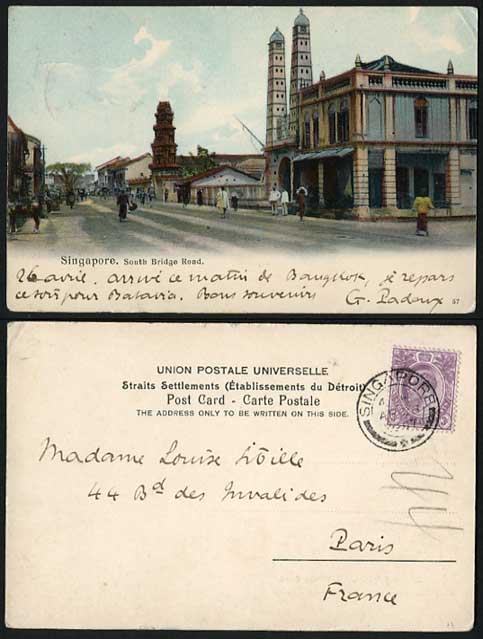 Singapore. South Bridge Road.
26 avril. arrivé ce matin de Bangkok, je repars
ce soir pour Batavia. Bons souvenirs G. Padoux
57
UNION POSTALE UNIVERSELLE
Straits Settlements (Établissements du Détroit)
Post Card - Carte Postale
THE ADDRESS ONLY TO BE WRITTEN ON THIS SIDE.
SINGAPORE
Madame Louise
44 Bd des Invalides
Paris
France